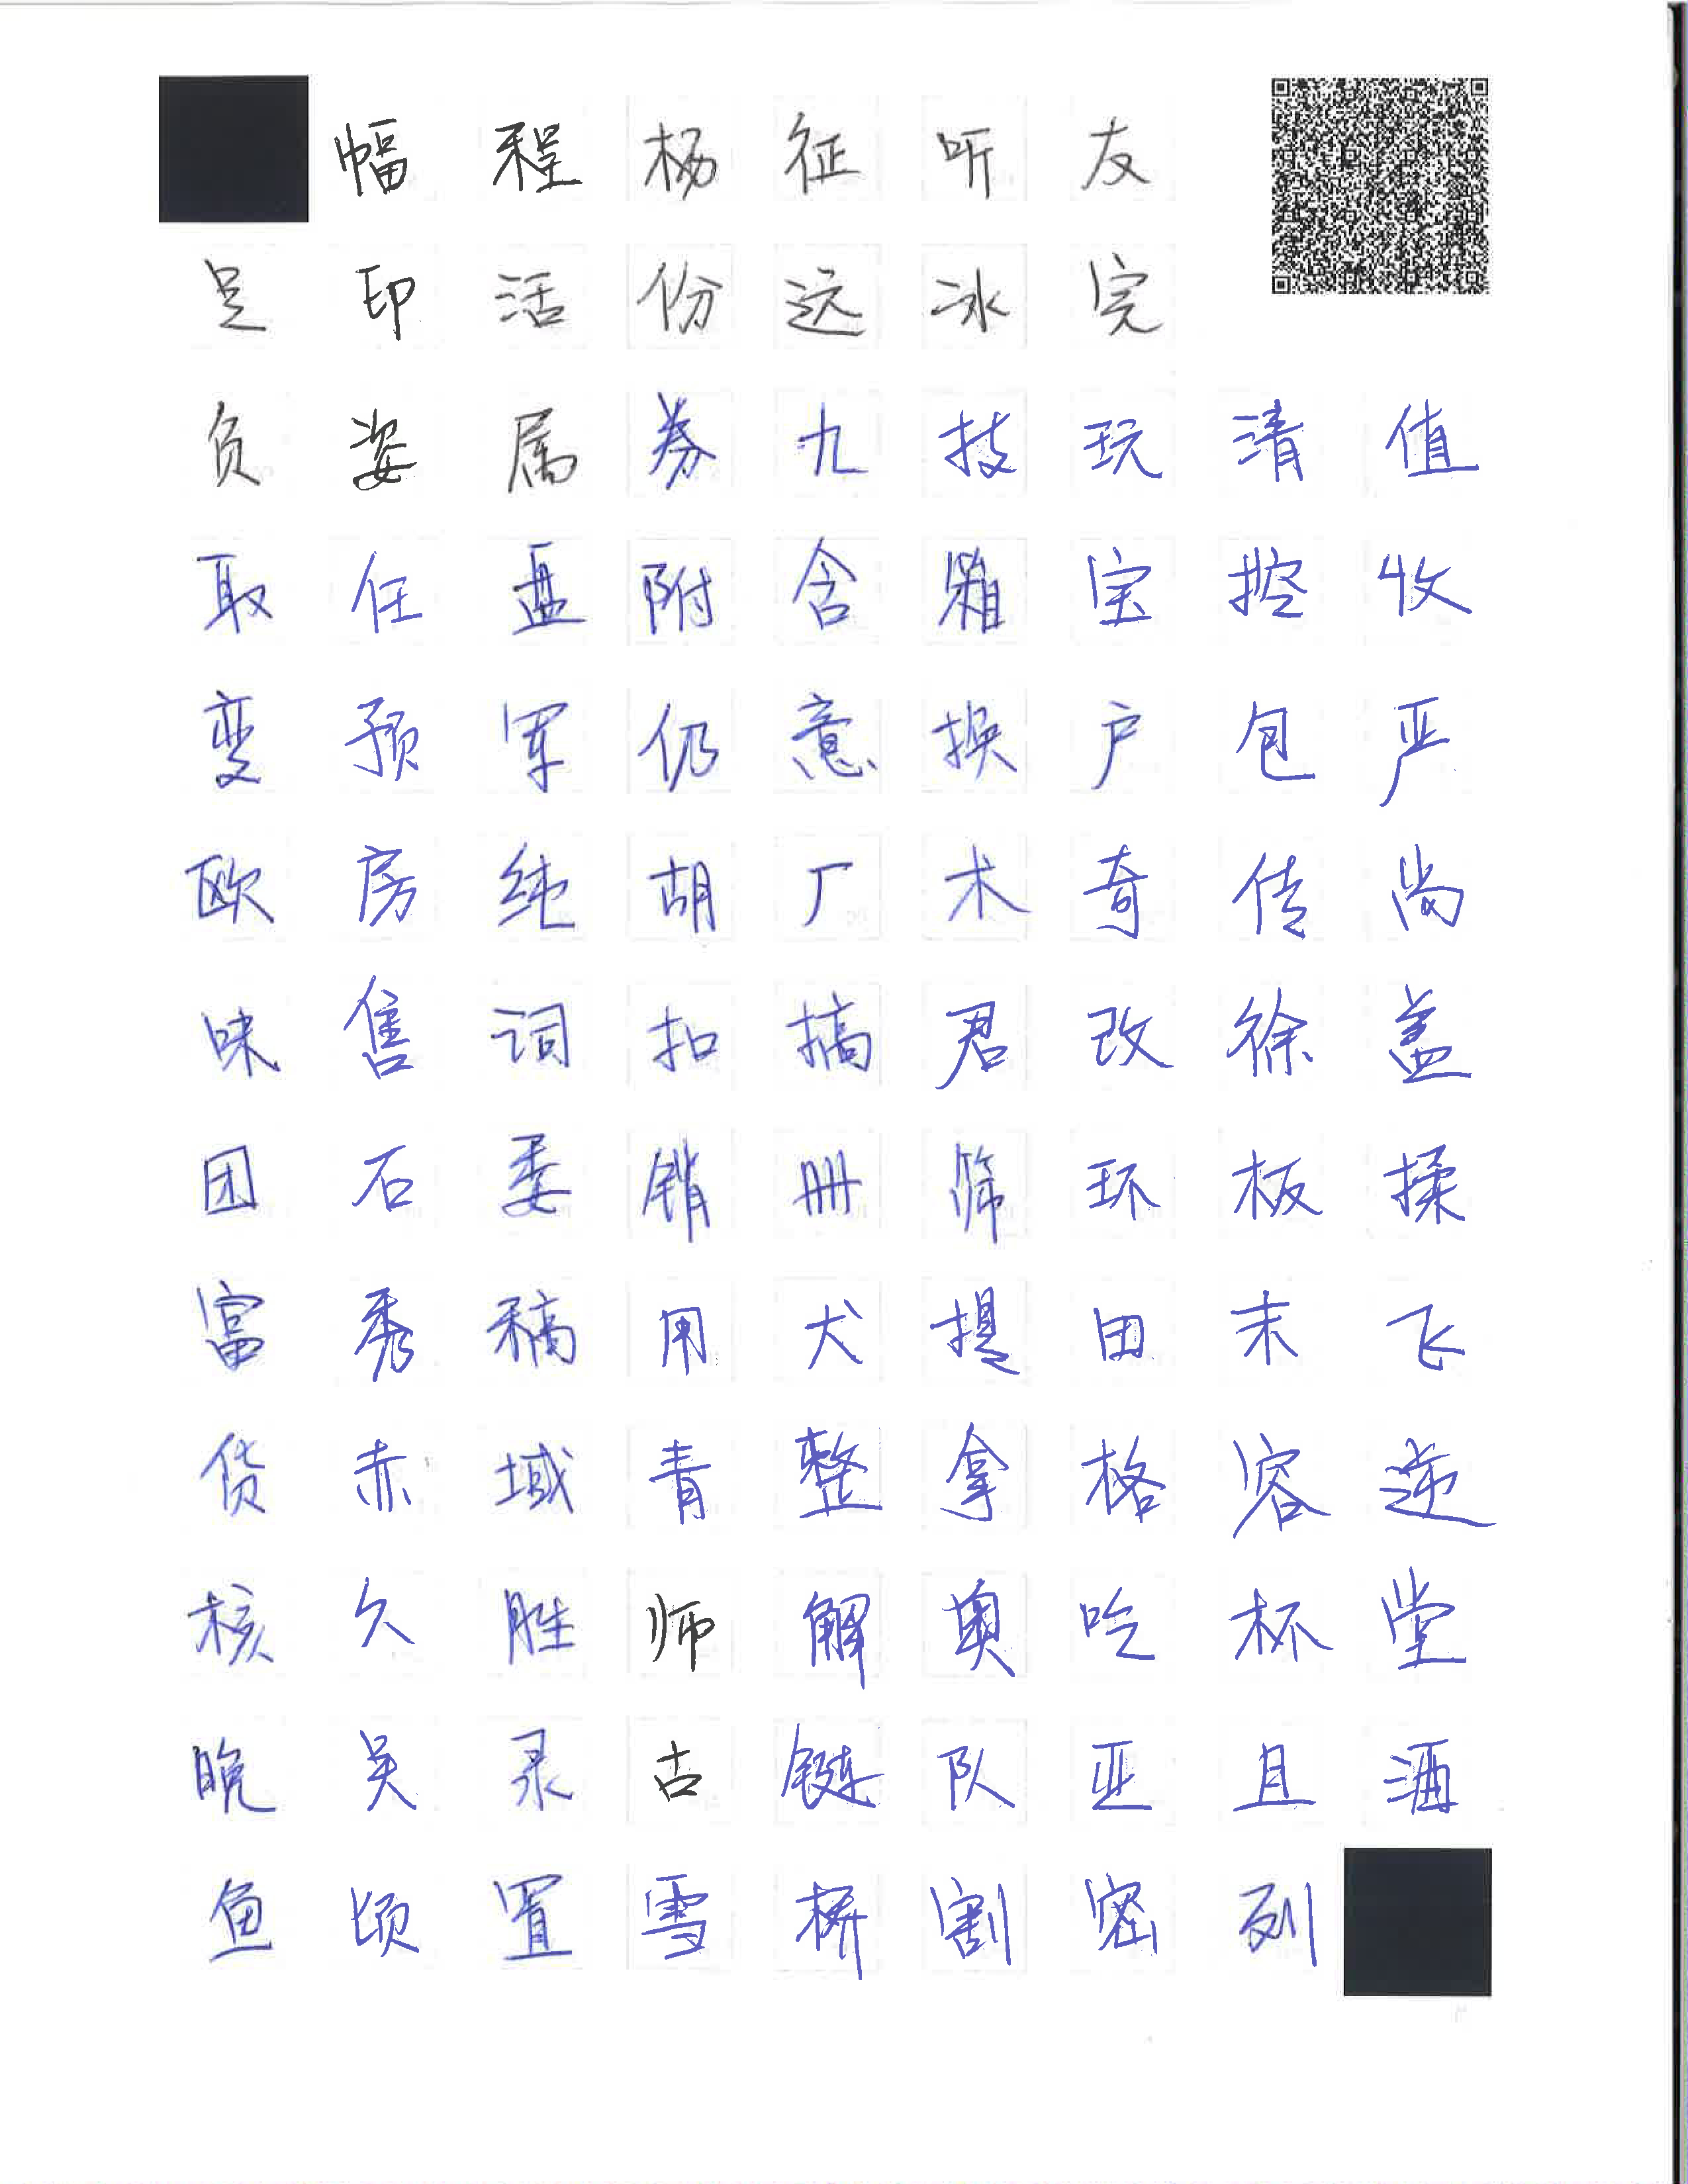 幅程杨征听友
足印活份远冰完
负姿属券九技玩清值
取任盘附含箱宝控收
变预军仍意换户包严
欧房纯胡厂术奇传尚
味售词扣搞君改徐盖
团石委销册筛环板揉
富秀稿用犬提田末飞
货赤域青整拿格容逆
核久胜师解奥吃杯堂
晚吴录古链队亚且洒
鱼顷置雪桥割密列